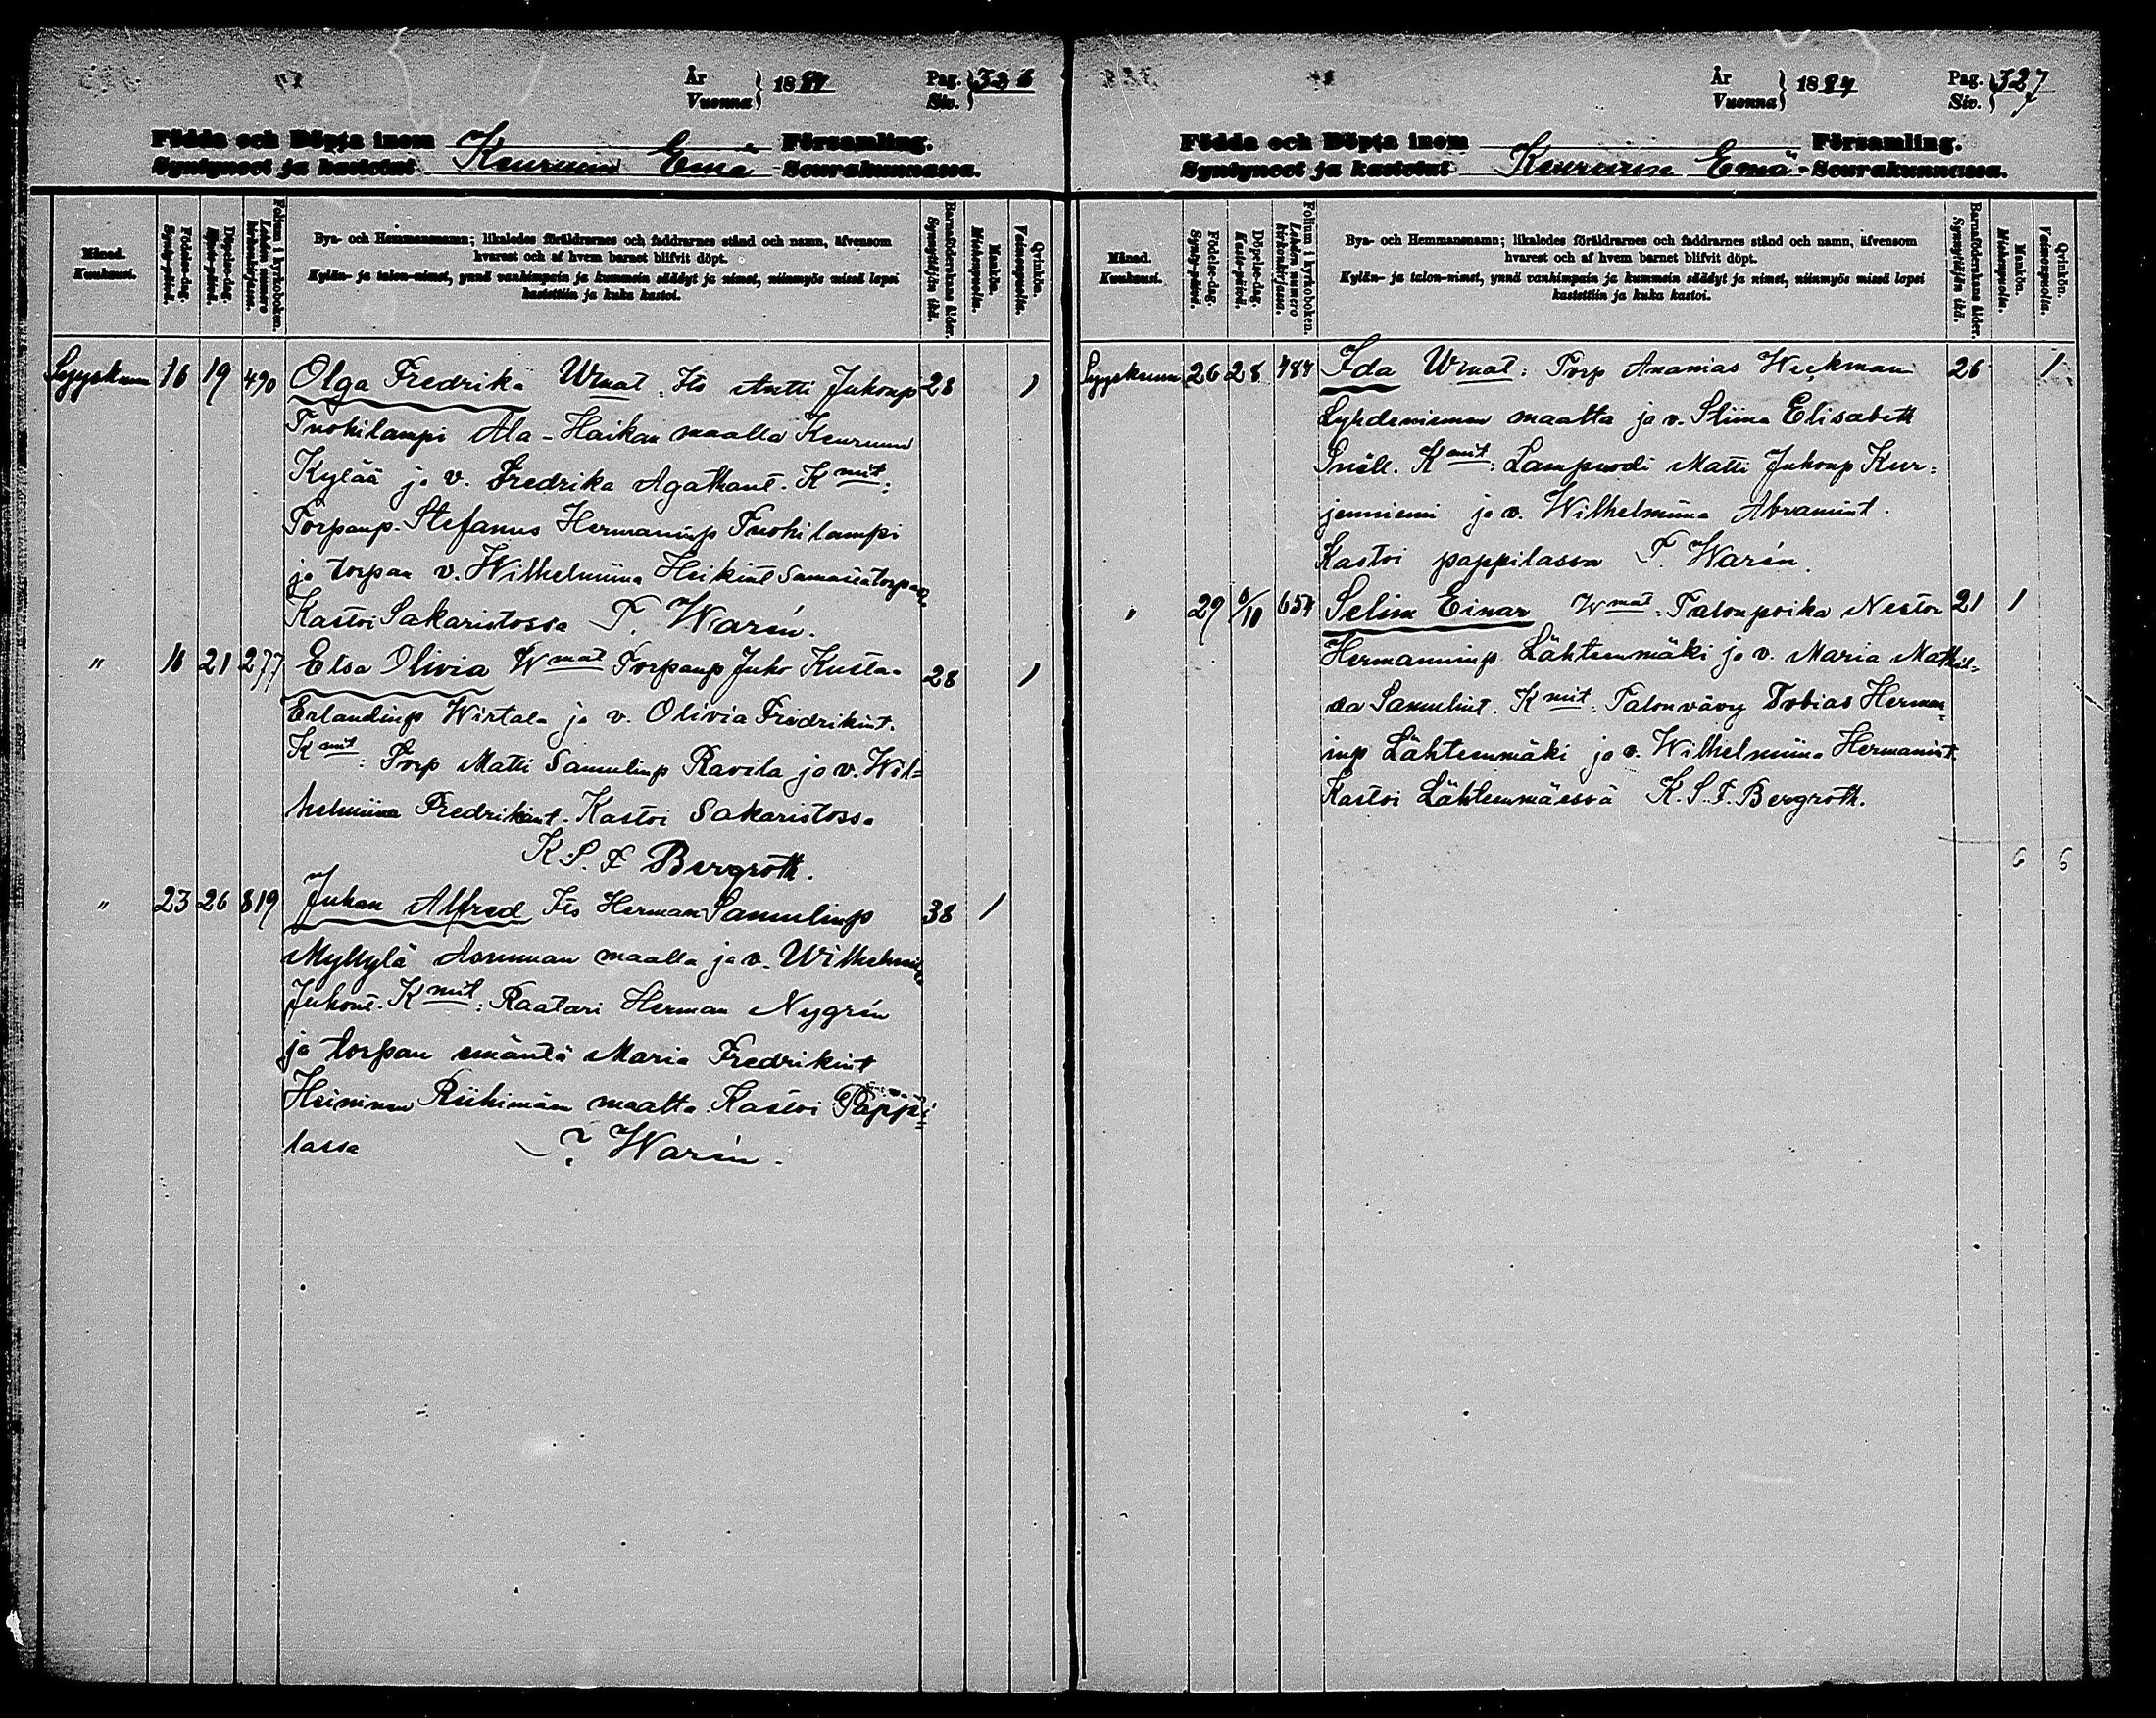 År
Vuonna } 1884
Pag.
Siv. } 326
Födda och Döpta inom Församling.
Syntyneet ja kastetut Keuruun Emä Seurakunnassa.
Månad.
Kuukausi.
Födelse-dag.
Synty-päivä.
Döpelse-dag.
Kaste-päivä.
Folium i kyrkoboken.
Lehden numero
kirkonkirjassa.
Bya- och Hemmansnamn; likaledes föräldrarnes och faddrarnes stånd och namn, äfvensom
hvarest och af hvem barnet blifvit döpt.
Kylän- ja talon-nimet, ynnä vanhimpain ja kummein säädyt ja nimet, niinmyös missä lapsi
kastettiin ja kuka kastoi.
Barnaföderskans ålder.
Synnyttäjän ikä.
Mankön.
Miehenpuolia.
Qvinkön.
Vaimonpuolia.
Syyskuun 16 19 490 Olga Fredrika Wmat: Its Antti Juhonp 28 1
Tuohilampi Ala-Haikan maalla Keuruun
Kylää ja v. Fredrika Agathant. Kmit:
Torpanp. Stefanus Hermaninp Tuohilampi
ja torpan v. Wilhelmiina Heikint
Kastoi Sakaristossa F. Warén.
" 16 21 277 Elsa Olivia Wmat Torpanp Juho Kustaa 28 1
Erlandinp Wirtala ja v. Olivia Fredrikint.
Kmit: Torp Matti Samulinp Ravila ja v. Wil=
helmiina Fredrikint. Kastoi Sakaristossa
K. S. F Bergroth.
" 23 26 819 Juhan Alfred Its Herman Samulinp 38 1
Myllylä Asunnan maalla ja v. Wilhelmiina
Juhont. Kmit: Raatari Herman Nygrén
ja torpan emäntä Maria Fredrikint
Heininen Riihimäen maalta Kastoi Pappi=
lassa F. Warén.
År
Vuonna } 1884
Pag.
Siv. } 327
Födda och Döpta inom Församling.
Syntyneet ja kastetut Keuruun Emä-Seurakunnassa.
Månad.
Kuukausi.
Födelse-dag.
Synty-päivä.
Döpelse-dag.
Kaste-päivä.
Folium i kyrkoboken.
Lehden numero
kirkonkirjassa.
Bya- och Hemmansnamn; likaledes föräldrarnes och faddrarnes stånd och namn, äfvensom
hvarest och af hvem barnet blifvit döpt.
Kylän- ja talon-nimet, ynnä vanhimpain ja kummein säädyt ja nimet, niinmyös missä lapsi
kastettiin ja kuka kastoi.
Barnaföderskans ålder.
Synnyttäjän ikä.
Mankön.
Miehenpuolia.
Qvinkön.
Vaimonpuolia.
Syyskuun 26 28 484 Ida Wmat: Torp Ananias Weckman 26 1
Lyhdeniemen maalta ja v. Stiina Elisabeth
Snäll. Kmit: Lampuodi Matti Juhonp Kur=
jenniemi ja v. Wilhelmiina Abramint.
Kastoi pappilassa F. Warén.
" 29 6/10 654 Selim Einar Wmat: Talonpoika Nestor 21 1
Hermanninp Lähteenmäki ja v. Maria Mathil=
da Samulint. Kmit: Talonvävy Tobias Herman=
inp Lähteenmäki ja v. Wilhelmiina Hermanint.
Kastoi Lähteenmäessä K. S. F. Bergroth.
6 6